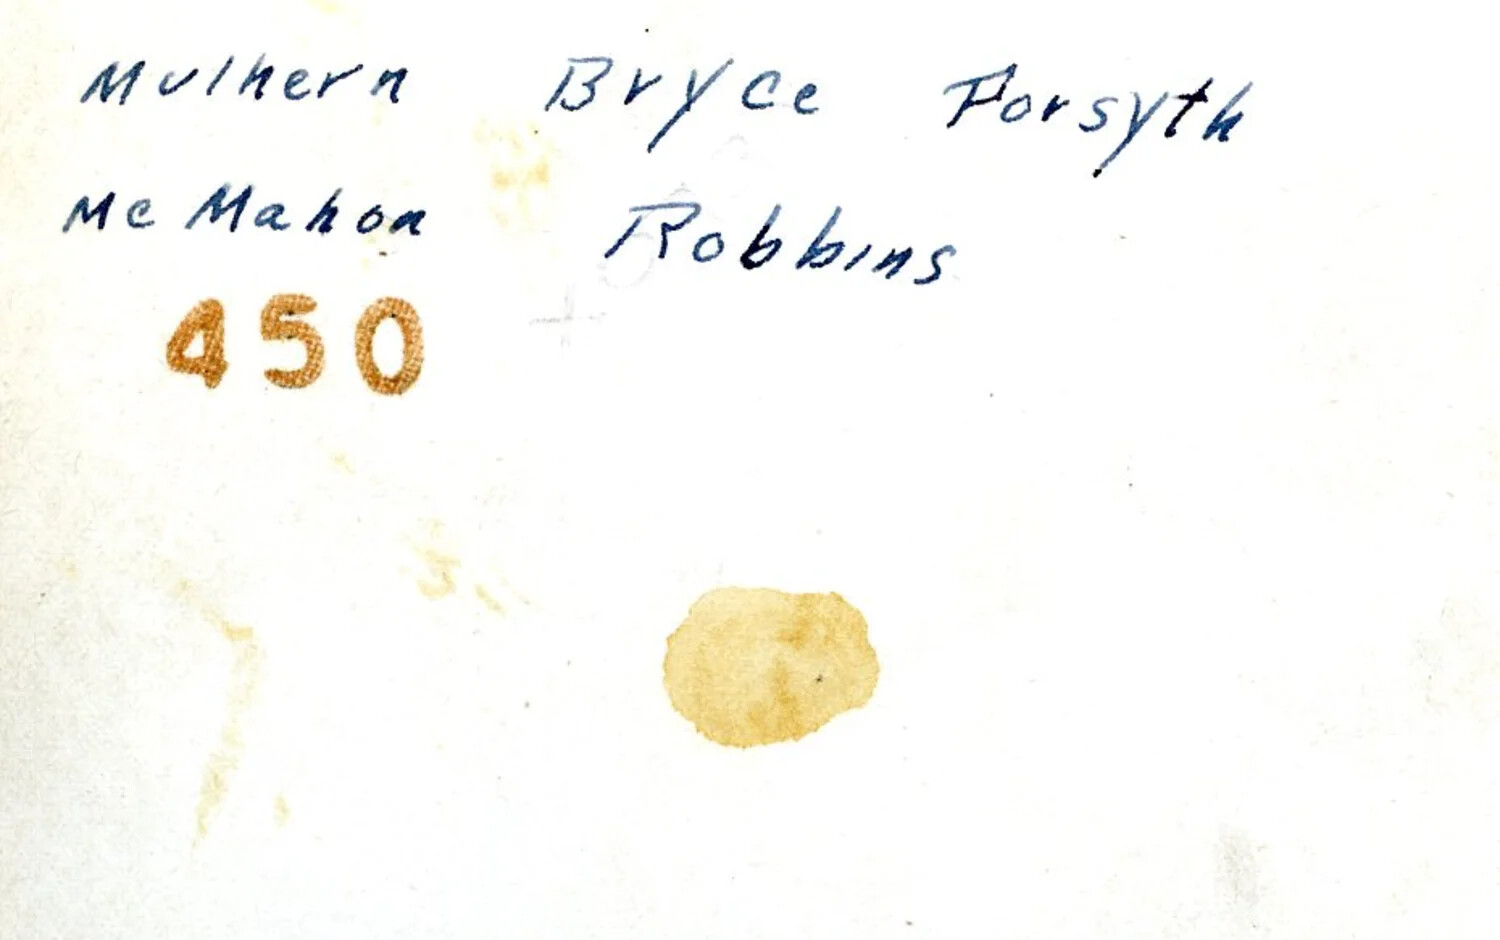 Mulhern Bryce Forsyth
McMahon Robbins
450